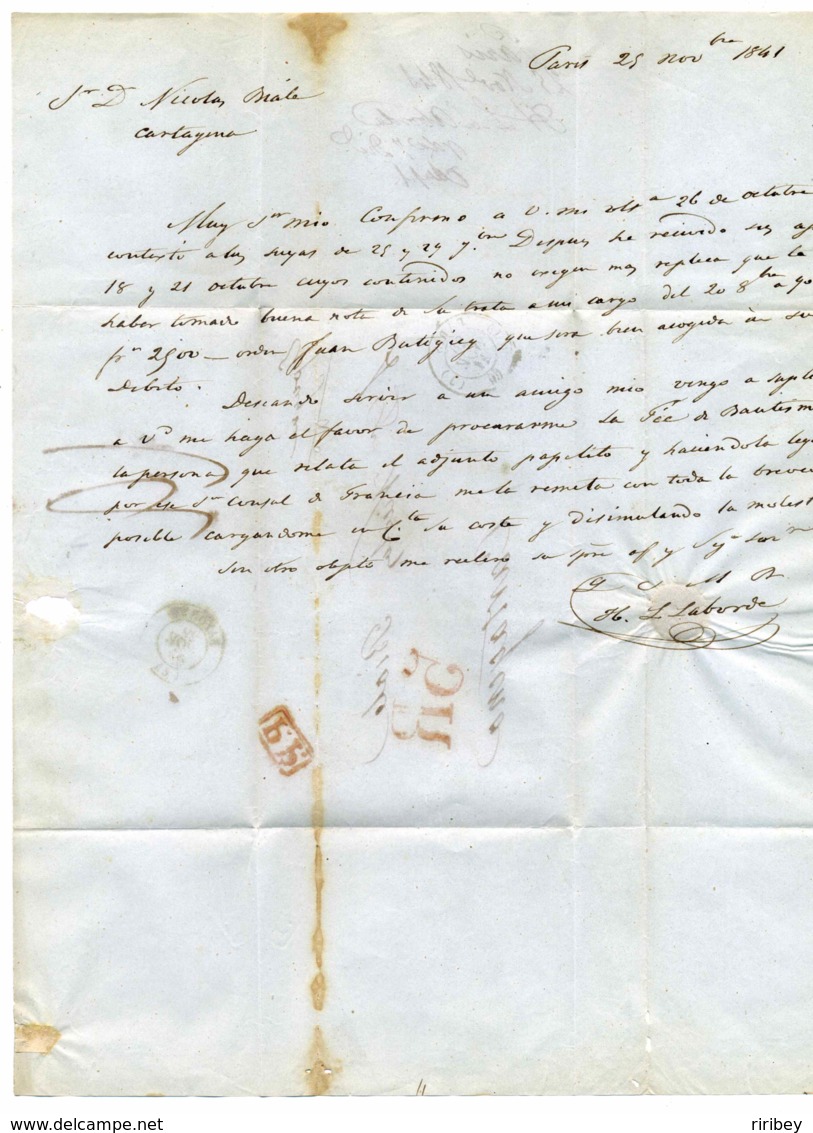 Paris 25 Nov bre 1841
Sr Dn Nicolas Biale
Cartagena
Muy Sr mio Confirmo a V. mi ult a 26 de octubre
contestó a las suyas de 25 y 29 7bre Despues he recivido sus ap
18 y 21 octubre cuyos contenidos no exigen mas replica que la
haber tomado buena nota de Su trata a mi cargo del 20 8bre a 90
frs 2500 — orden Juan que sera bien acogida a su
Debito.
Deseando servir a un amigo mio vengo a suplic
a Vd me haga el favor de procurarme la Fée de Bautism
la persona que relata el adjunto papelito y haciendola leg
por ese Sr Consul de Francia me la remeta con toda la breve
posible cargandome en Cta su coste y disimulando la molest
Sin otro objeto me reitero su spre af y Sego Servr
Q S M B
H. L. Laborde
PP
ririBey